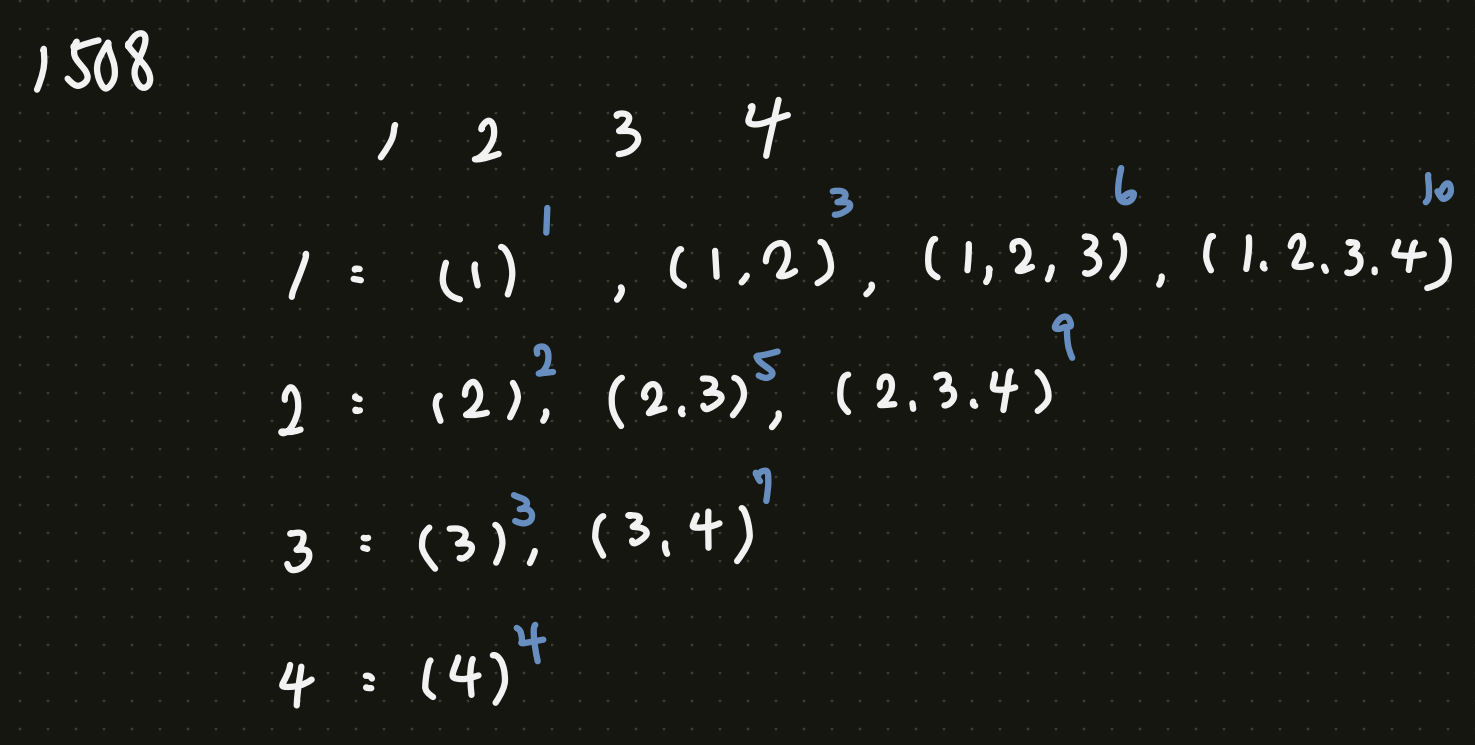 1508
1 2 3 4
1 : (1) 1 , (1,2) 3 , (1,2,3) 6 , (1.2.3.4) 10
2 : (2) 2 , (2.3) 5 , (2.3.4) 9
3 : (3) 3 , (3.4) 7
4 : (4) 4